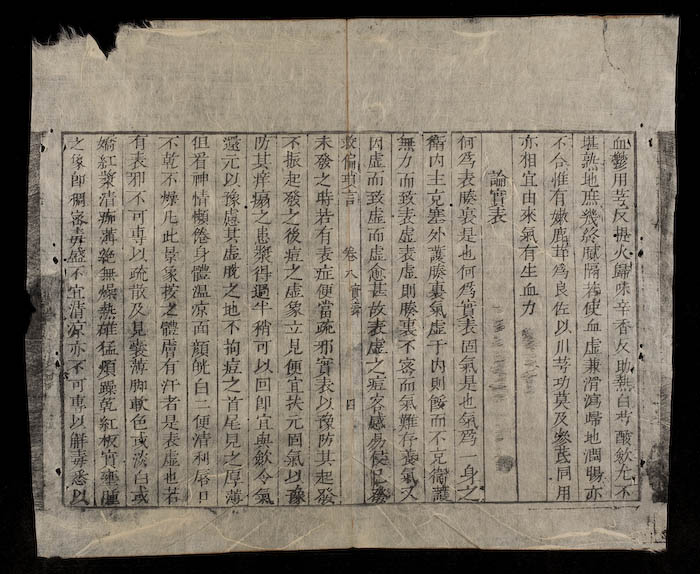 血鬱用芎反提火歸味辛香又助熱白芍酸飲尤不
堪熟地庶幾終膩隔若使血虛兼滑瀉歸地潤腸亦
不合惟有嫩鹿茸爲良佐以川芎功莫及參芪同用
亦相宜由來氣有生血力
論實表
何爲表腠裏是也何爲實表固氣是也氣爲一身之
衛內主充塞外護腠裏氣虛于內則餒而不克衛護
無力而致表虛表虛則腠裏不密而氣難存養氣又
因虛而致虛而虛愈甚故表虛之痘客感易侵已發
救偏瑣言 卷八實 四
未發之時若有表症便當疏邪實表以豫防其起發
不振起發之後痘之虛象立見便宜扶元固氣以豫
防其痒塌之患漿得過半稍可以回卽宜與斂令氣
還元以豫慮其虛脫之地不拘痘之首尾見之厚薄
但看神情懶倦身體溫涼面顏㿠白二便清利唇口
不乾不燥凡此景象按之體膚有汗者是表虛也若
有表邪不可專以疏散及見裝薄脚軟色或淡白或
嬌紅漿清痂薄絕無燥熱雄猛煩躁乾紅板實壅腫
之象卽稠密毒盛不宜清涼亦不可專以解毒悉以